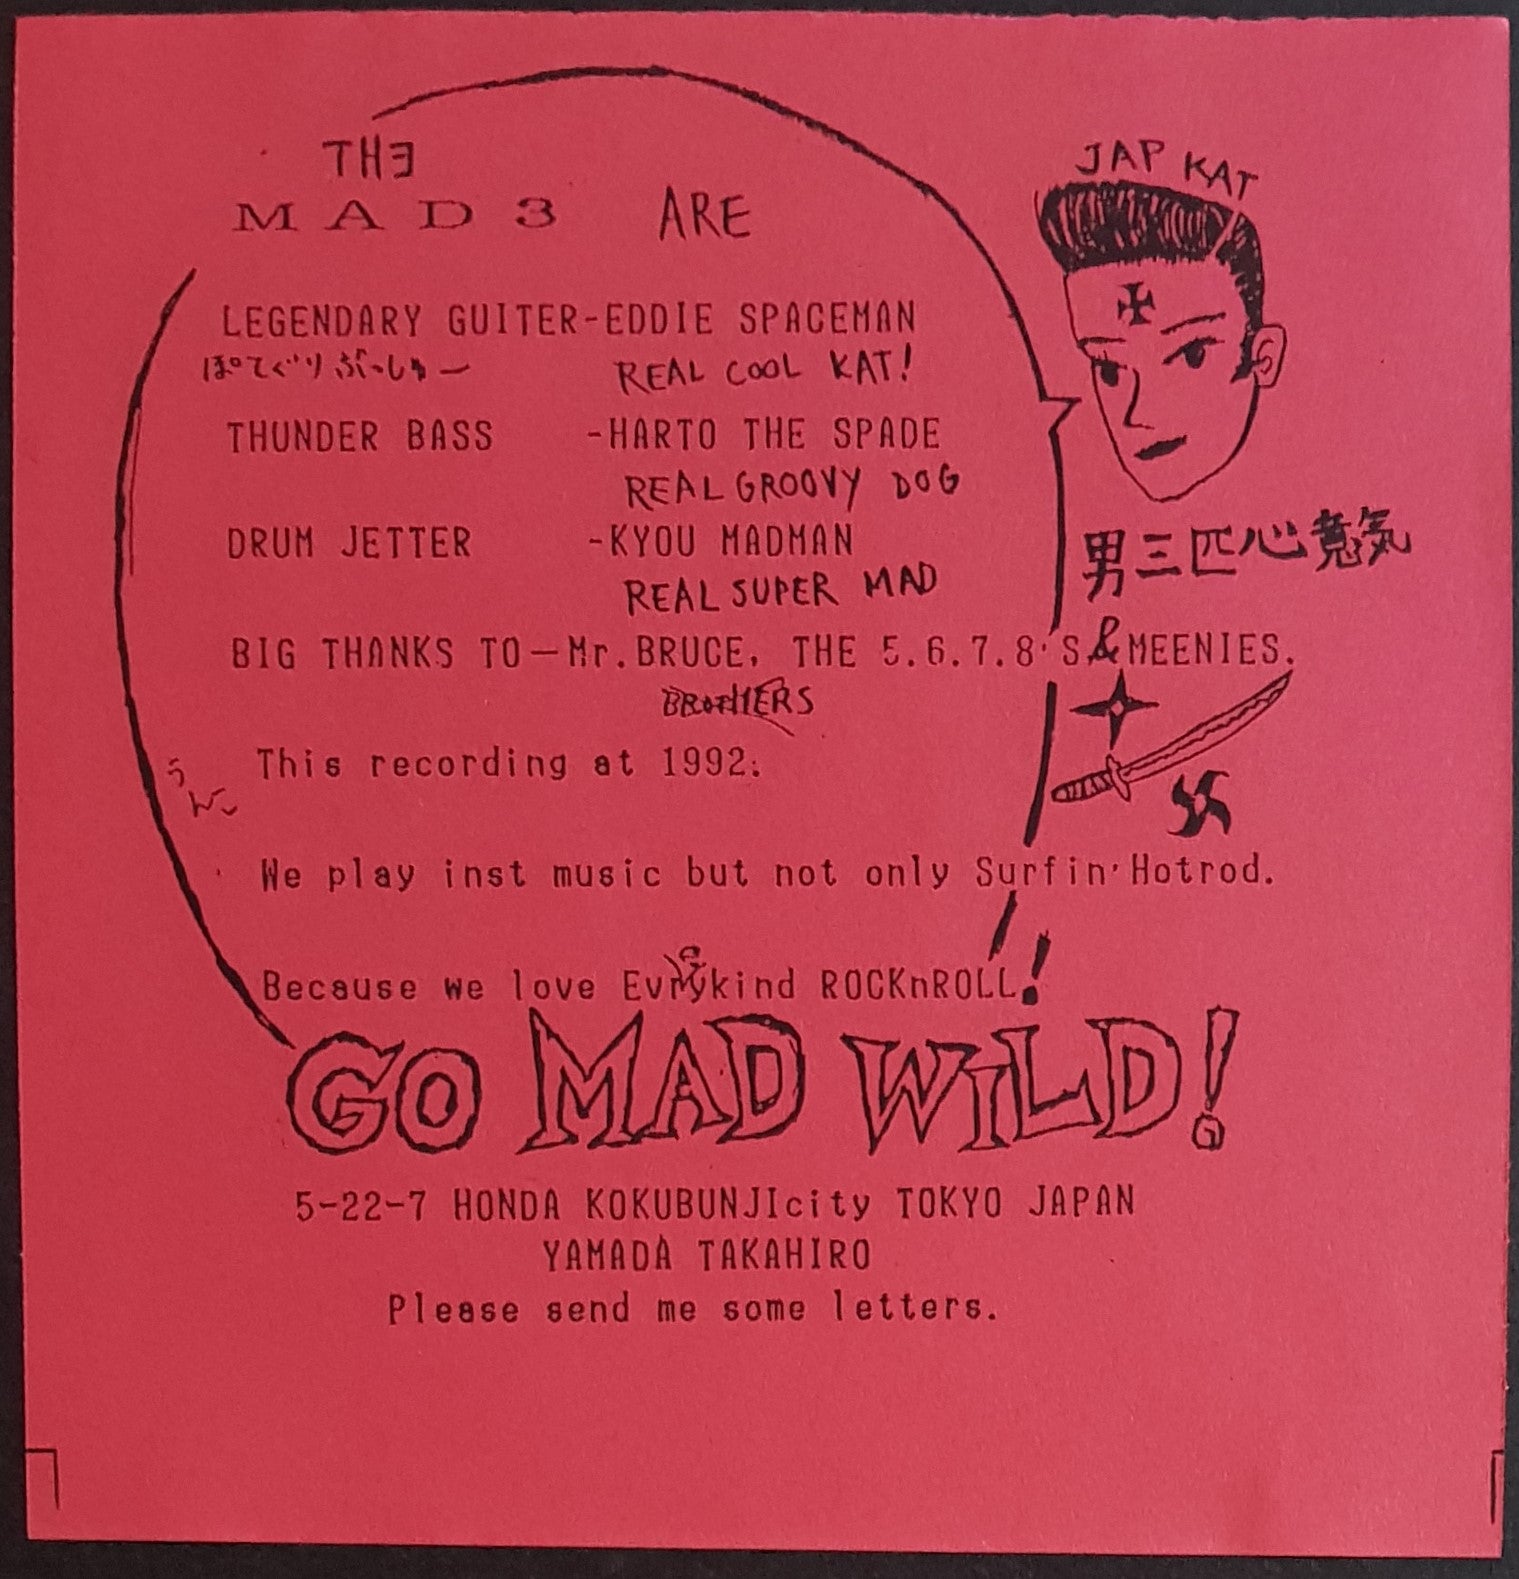 THE
MAD3 ARE
JAP KAT
LEGENDARY GUITER-EDDIE SPACEMAN
ぽてぐり ぶっしゅー REAL COOL KAT!
THUNDER BASS -HARTO THE SPADE
REAL GROOVY DOG
DRUM JETTER -KYOU MADMAN
男三匹心意気
REAL SUPER MAD
BIG THANKS TO-Mr.BRUCE, THE 5.6.7.8'S & MEENIES.
BROTHERS
This recording at 1992.
We play inst music but not only Surfin' Hotrod.
Because we love Evrykind ROCKnROLL!
GO MAD WILD!
5-22-7 HONDA KOKUBUNJIcity TOKYO JAPAN
YAMADA TAKAHIRO
Please send me some letters.